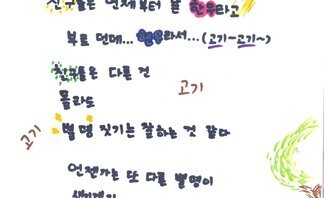 친구들은 언제부터 날 한우라고
부르던데... 현우라서...(고기~고기~)
친구들은 다른 건
몰라도
고기
고기
별명 짓기는 잘하는 것 같다
언젠가는 또 다른 별명이